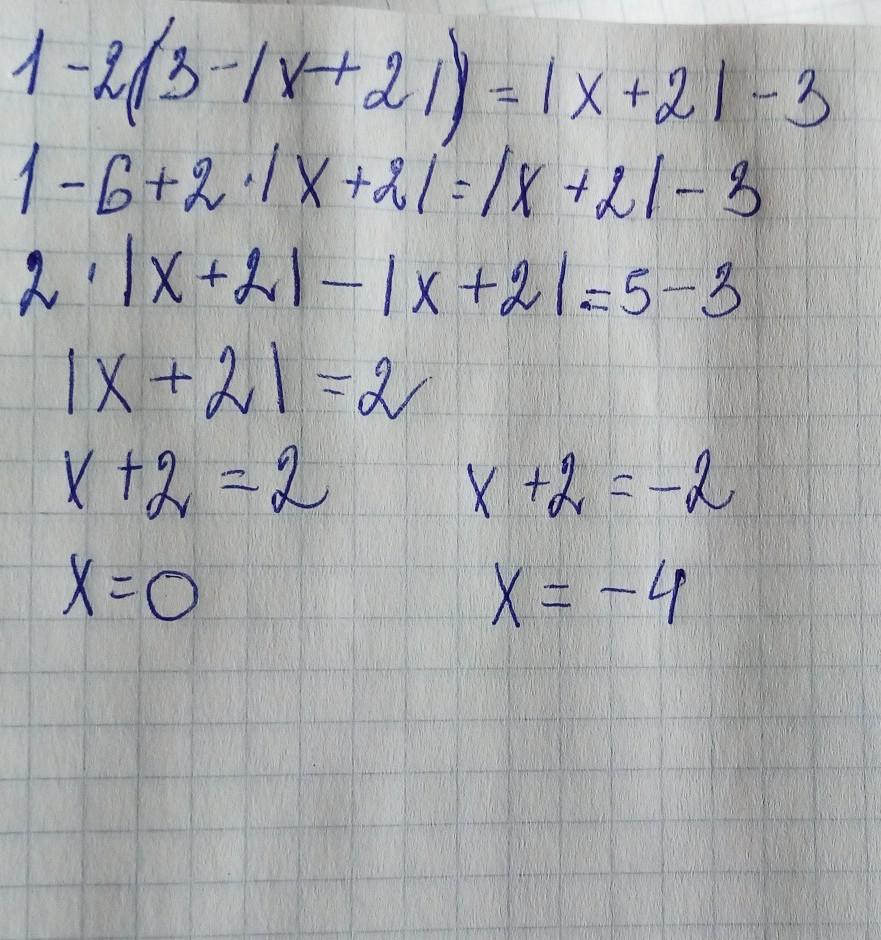 1-2(3-|x+2|)=|x+2|-3
1-6+2·|x+2|=|x+2|-3
2·|x+2|-|x+2|=5-3
|x+2|=2
x+2=2 x+2=-2
x=0 x=-4